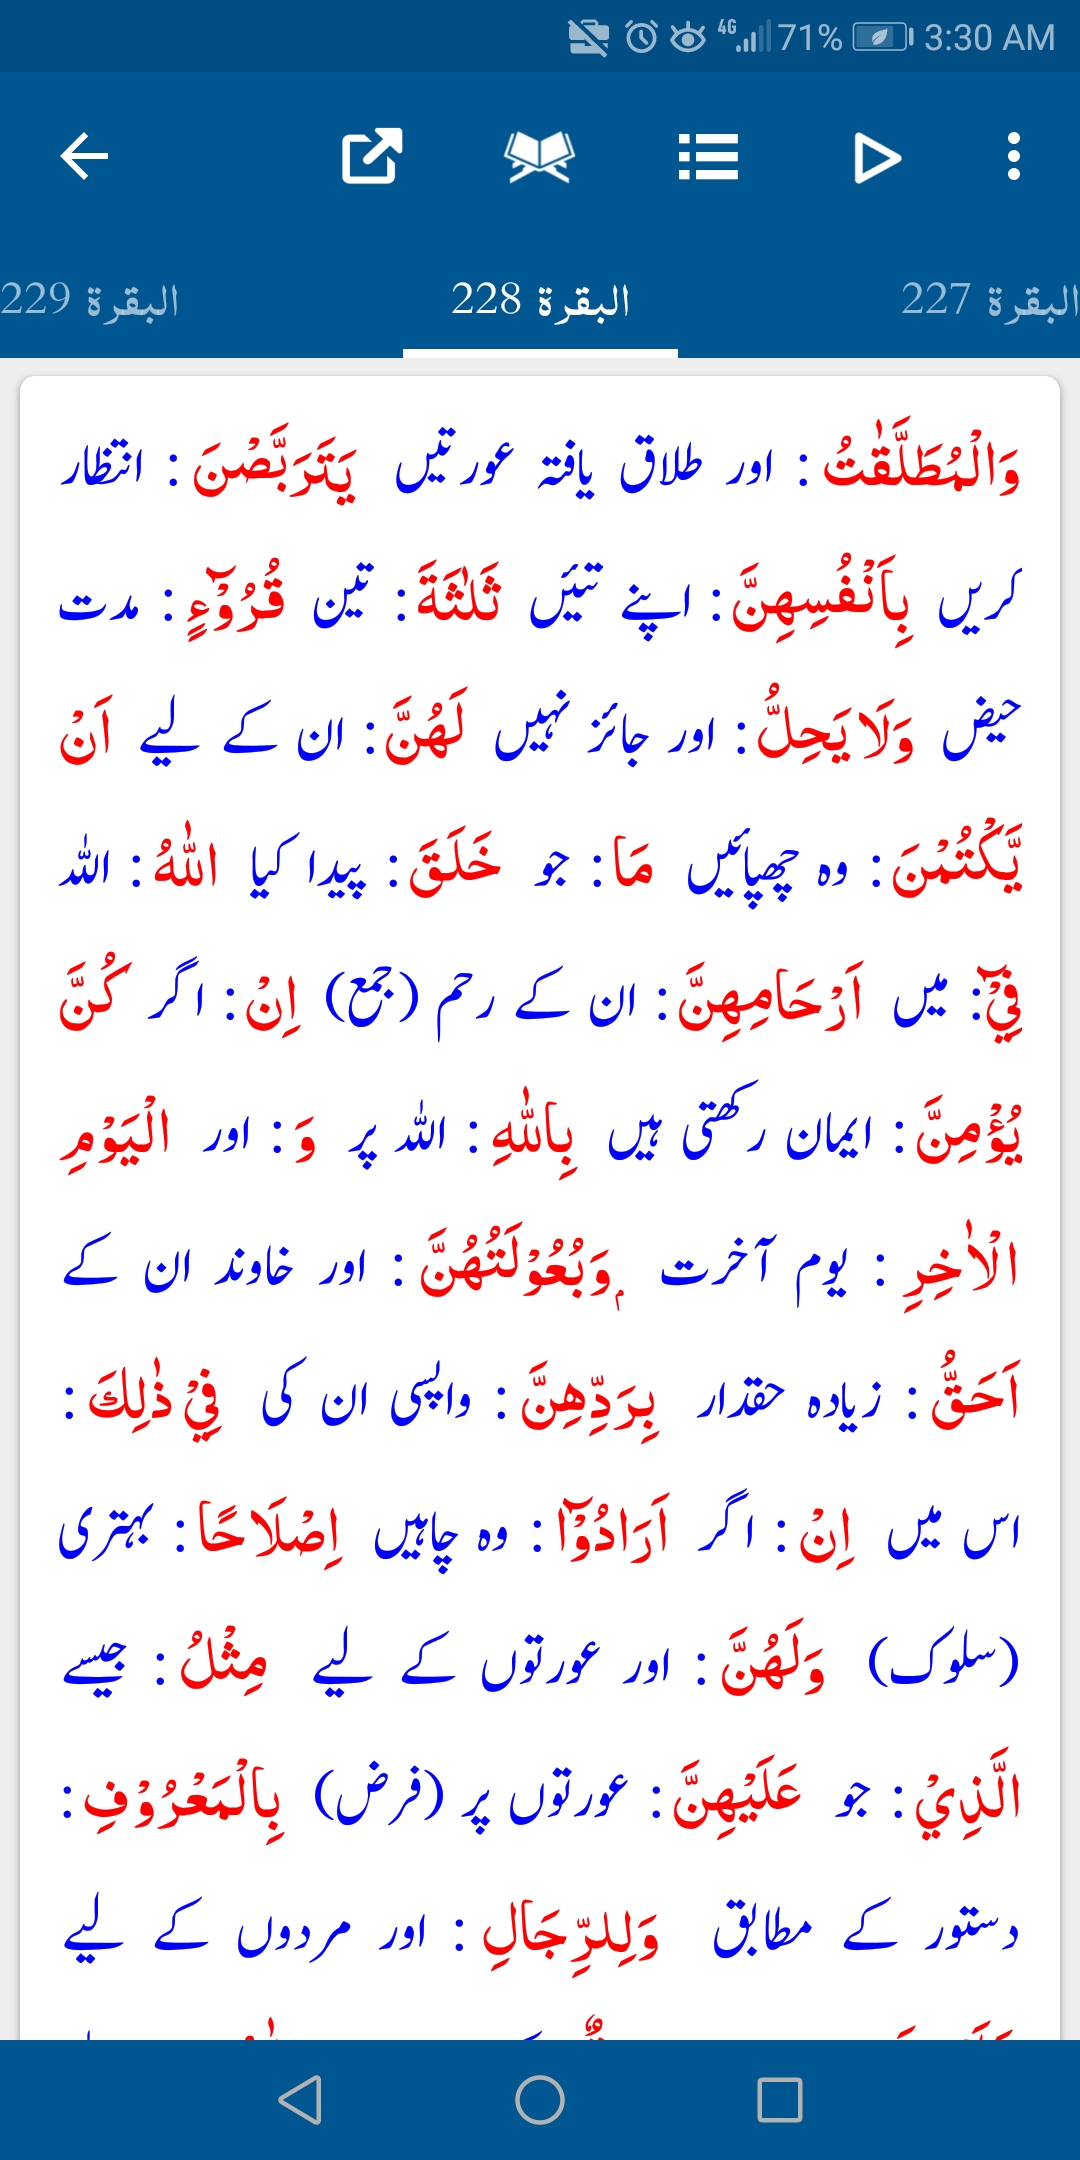 4G 71% 3:30 AM
البقرة 227
البقرة 228
البقرة 229
وَالْمُطَلَّقٰتُ : اور طلاق یافتہ عورتیں يَتَرَبَّصْنَ : انتظار
کریں بِاَنْفُسِهِنَّ : اپنے تئیں ثَلٰثَةَ : تین قُرُوْٓءٍ : مدت
حیض وَلَا يَحِلُّ : اور جائز نہیں لَهُنَّ : ان کے لیے اَنْ
يَّكْتُمْنَ : وہ چھپائیں مَا : جو خَلَقَ : پیدا کیا اللّٰهُ : اللہ
فِيْٓ : میں اَرْحَامِهِنَّ : ان کے رحم (جمع) اِنْ : اگر كُنَّ
يُؤْمِنَّ : ایمان رکھتی ہیں بِاللّٰهِ : اللہ پر وَ : اور الْيَوْمِ
الْاٰخِرِ : یوم آخرت ۭوَبُعُوْلَتُهُنَّ : اور خاوند ان کے
اَحَقُّ : زیادہ حقدار بِرَدِّهِنَّ : واپسی ان کی فِيْ ذٰلِكَ :
اس میں اِنْ : اگر اَرَادُوْٓا : وہ چاہیں اِصْلَاحًا : بہتری
(سلوک) وَلَهُنَّ : اور عورتوں کے لیے مِثْلُ : جیسے
الَّذِيْ : جو عَلَيْهِنَّ : عورتوں پر (فرض) بِالْمَعْرُوْفِ :
دستور کے مطابق وَلِلرِّجَالِ : اور مردوں کے لیے